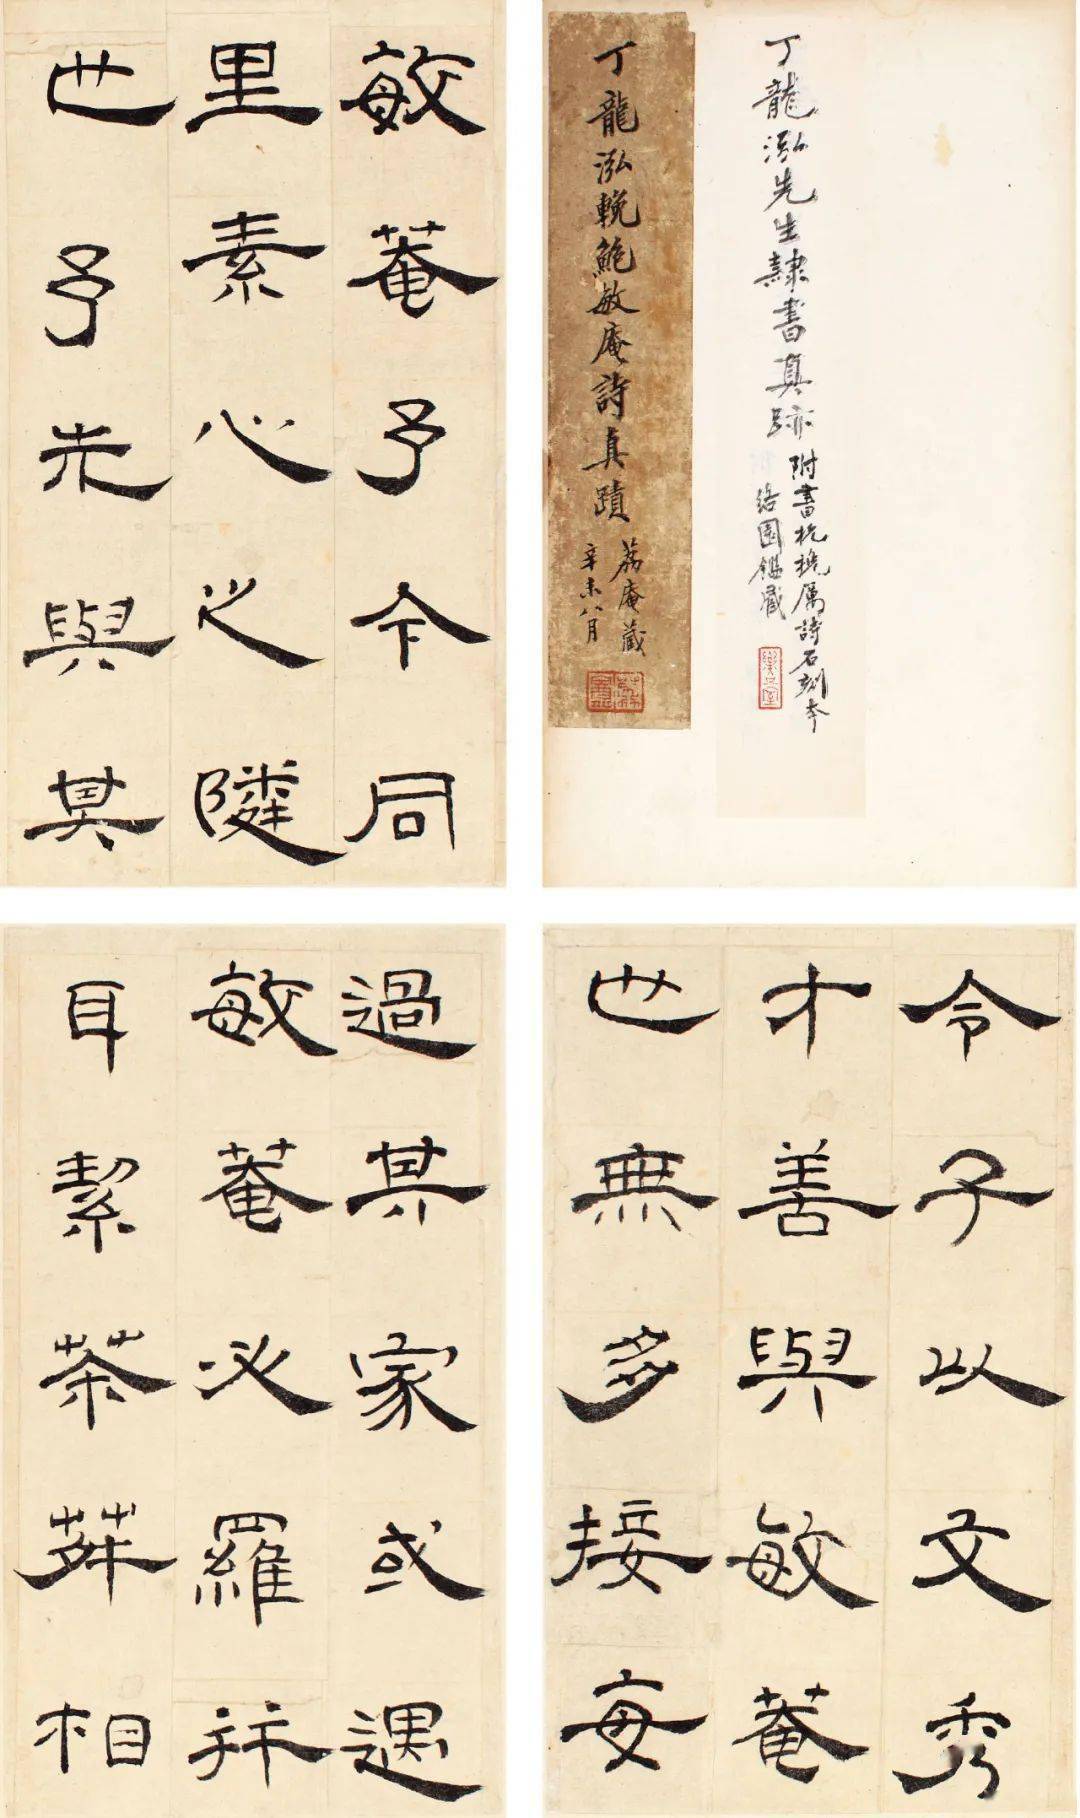 丁龍泓先生隸書真跡
附書杭挽厲詩石刻本
絡園鑑藏
丁龍泓輓鮑敏庵詩真蹟
荔庵藏
辛未八月
敏菴予今同
里素心之隣
也予未與其
令子以文秀
才善與敏菴
也無多接每
過其家或遇
敏菴必羅
耳絜茶荈相